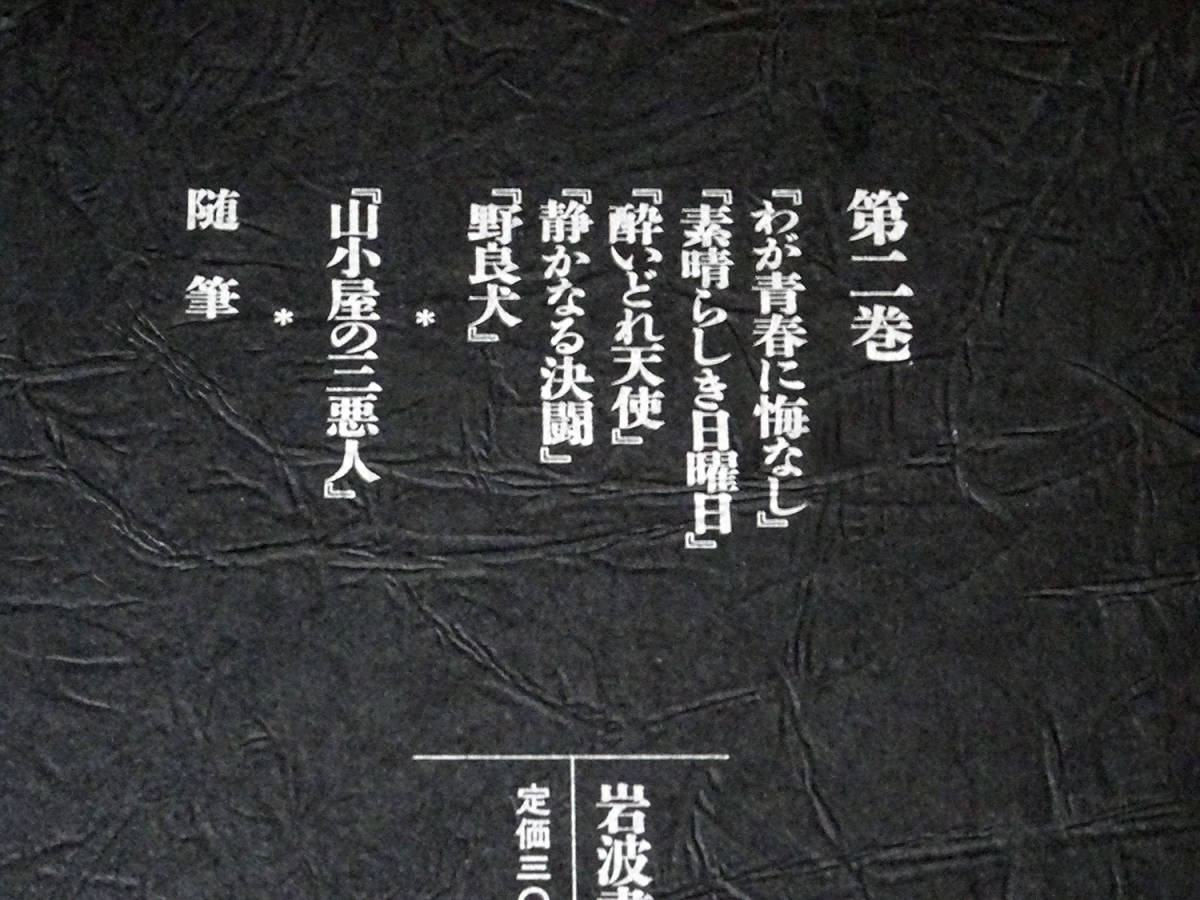 第二巻
『わが青春に悔なし』
『素晴らしき日曜日』
『酔いどれ天使』
『静かなる決闘』
『野良犬』
*
『山小屋の三悪人』
*
随筆
岩波
定価三〇